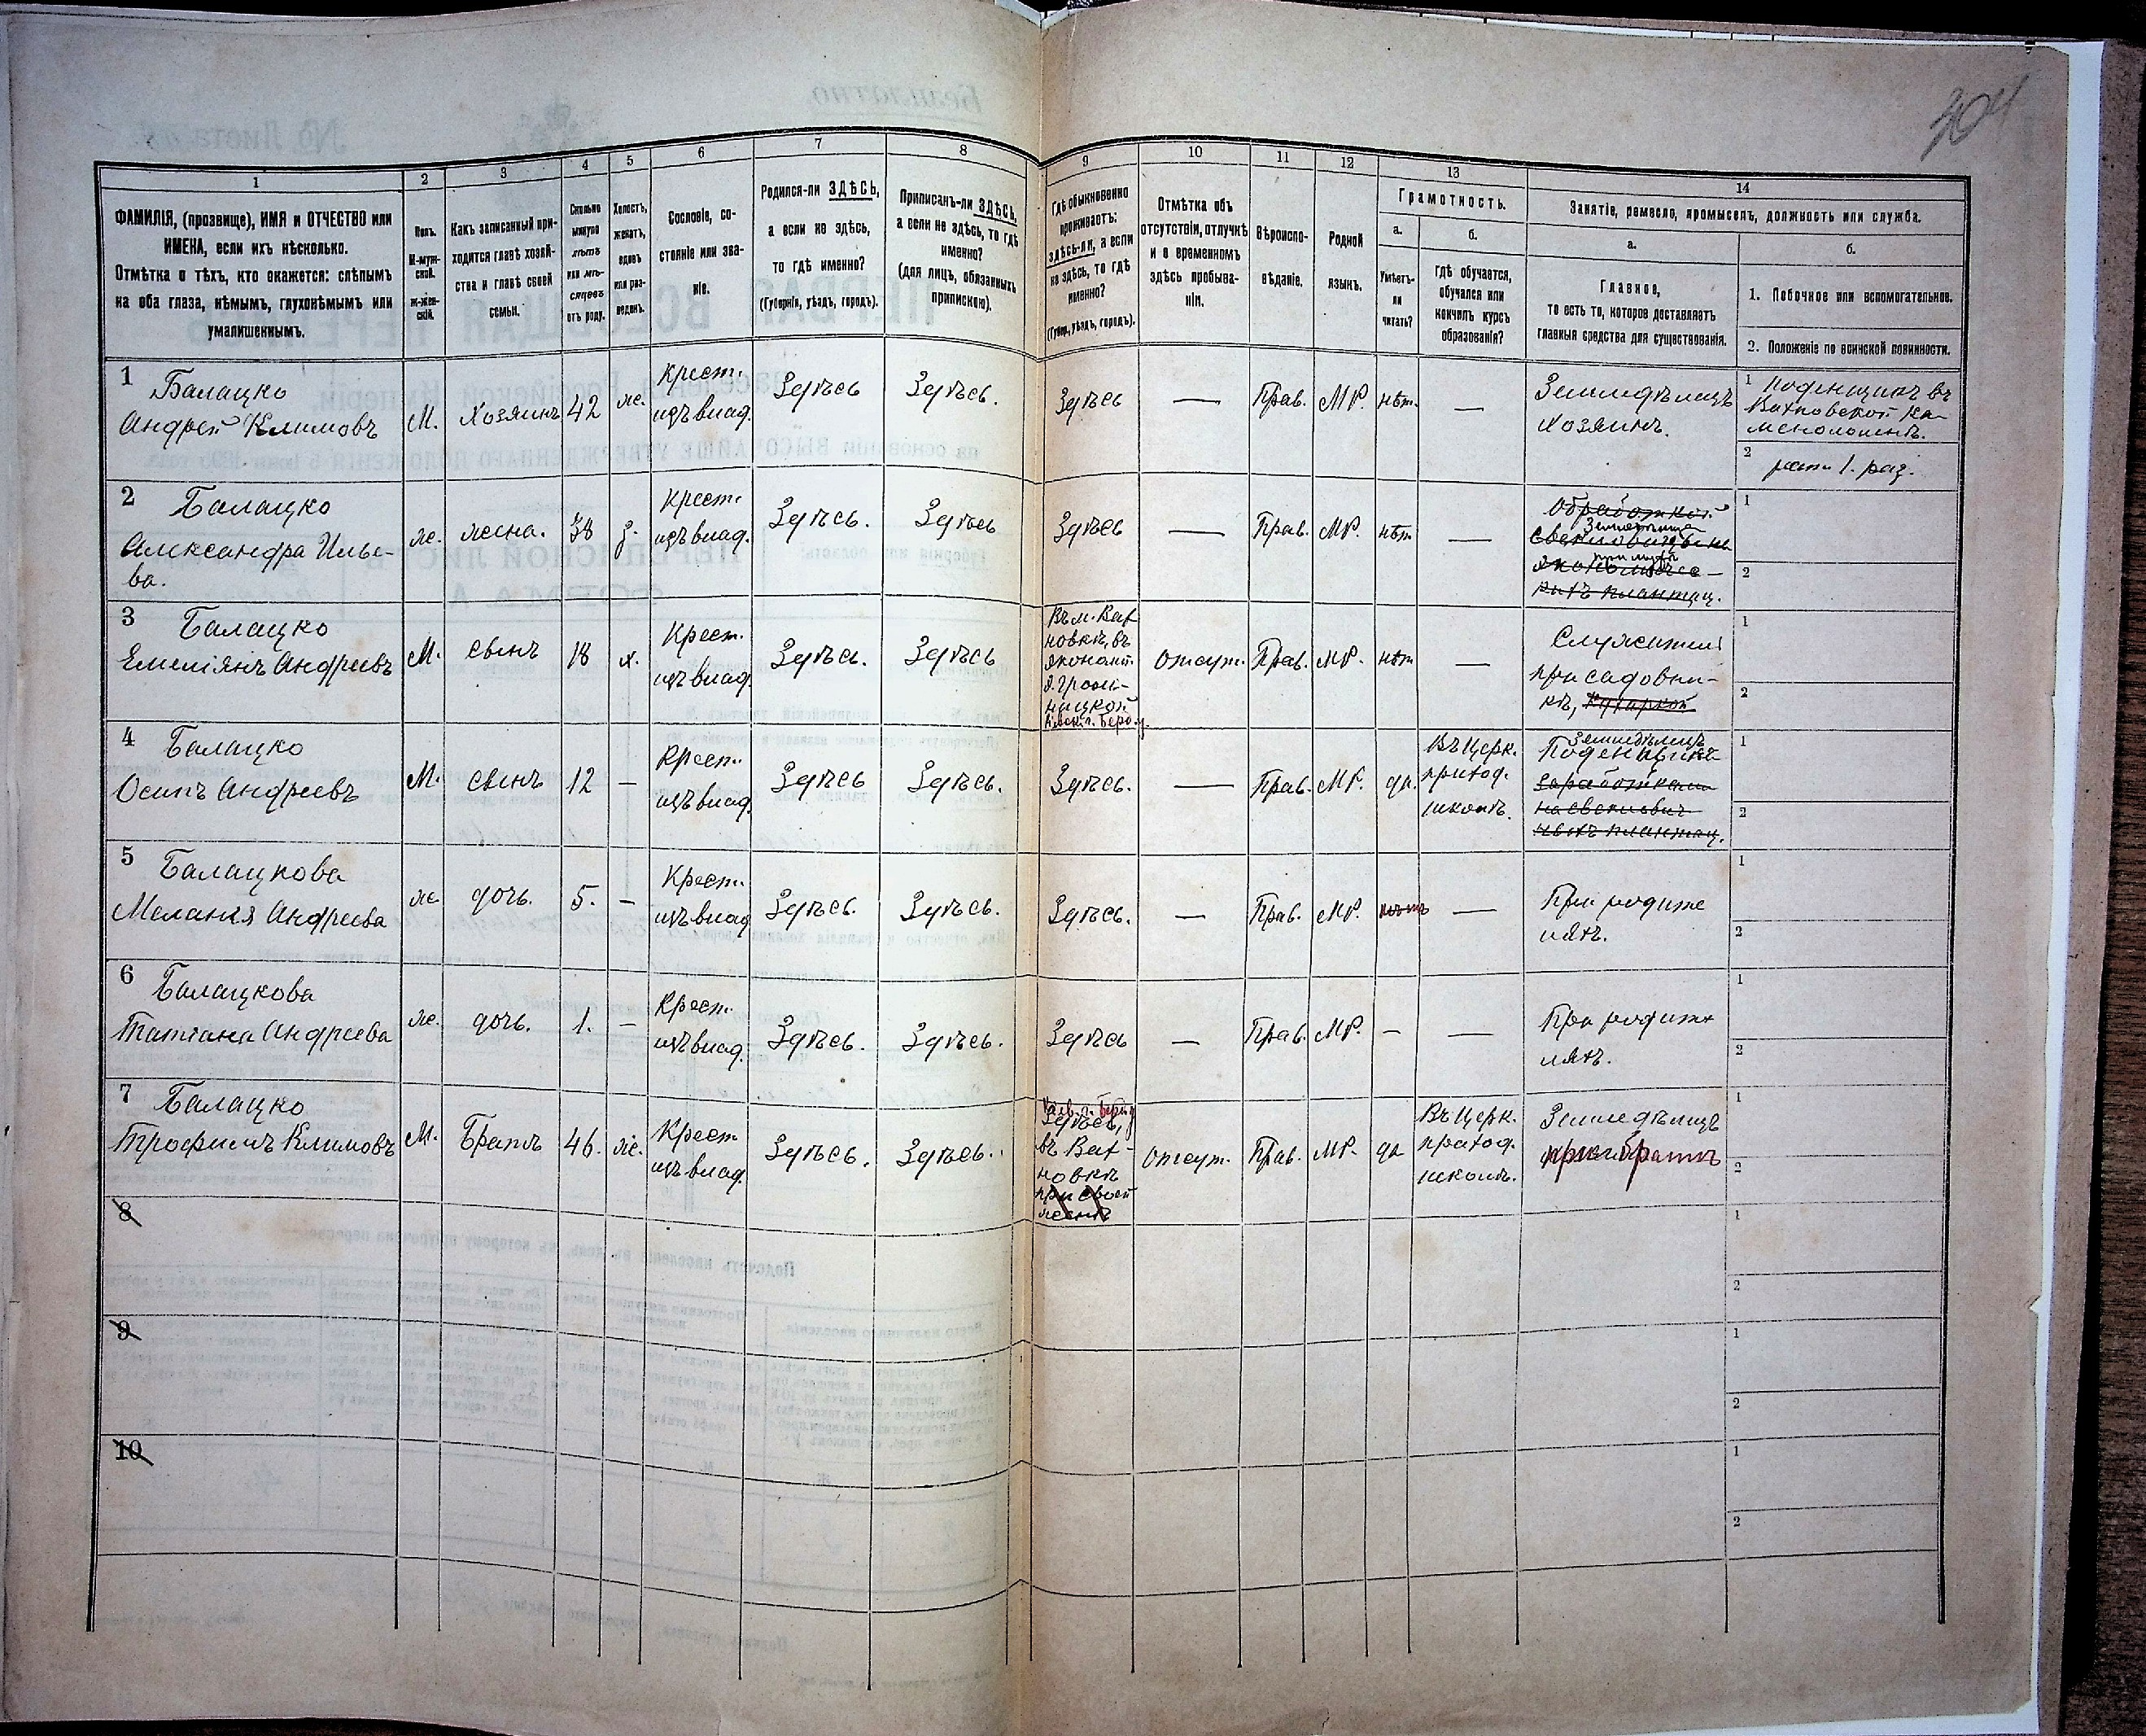 304
1 2 3 4 5 6 7 8 9 10 11 12 13 14
ФАМИЛІЯ, (прозвище), ИМЯ и ОТЧЕСТВО или
ИМЕНА, если ихъ нѣсколько.
Отмѣтка о тѣхъ, кто окажется: слѣпымъ
на оба глаза, нѣмымъ, глухонѣмымъ или
умалишеннымъ.
Полъ.
М-муж-
ской.
Ж-жен-
скій.
Какъ записанный при-
ходится главѣ хозяй-
ства и главѣ своей
семьи.
Сколько
минуло
лѣтъ
или мѣ-
сяцевъ
отъ роду.
Холостъ,
женатъ,
вдовъ
или раз-
веденъ.
Сословіе, со-
стояніе или зва-
ніе.
Родился-ли ЗДѢСЬ,
а если не здѣсь,
то гдѣ именно?
(Губернія, уѣздъ, городъ).
Приписанъ-ли ЗДѢСЬ,
а если не здѣсь, то гдѣ
именно?
(для лицъ, обязанныхъ
припискою).
Гдѣ обыкновенно
проживаетъ:
здѣсь-ли, а если
не здѣсь, то гдѣ
именно?
(Губер., уѣздъ, городъ).
Отмѣтка объ
отсутствіи, отлучкѣ
и о временномъ
здѣсь пребыва-
ніи.
Вѣроиспо-
вѣданіе.
Родной
языкъ.
Грамотность.
а.
Умѣетъ-
ли
читать?
б.
Гдѣ обучается,
обучался или
кончилъ курсъ
образованія?
Занятіе, ремесло, промыселъ, должность или служба.
а.
Главное,
то есть то, которое доставляетъ
главныя средства для существованія.
б.
1. Побочное или вспомогательное.
2. Положеніе по воинской повинности.
1 Балацко
Андрей Климовъ
М. Хозяинъ 42 ж.
Крест.
изъ влад.
Здѣсь Здѣсь. Здѣсь — Прав. МР. нѣт. —
Земледѣлецъ
хозяинъ.
1 Поденщикъ въ
каменоломнѣ.
2 ратн. 1. раз.
2 Балацко
Александра Илье-
ва.
ж. жена. 38 з.
Крест.
изъ влад.
Здѣсь. Здѣсь Здѣсь — Прав. МР. нѣт —
Обработкой
плантац.
1
2
3 Балацко
Емеліянъ Андреевъ
М. сынъ 18 х.
Крест.
изъ влад.
Здѣсь. Здѣсь
Въ м. Вах
новкѣ, въ
эконом.
Отсут. Прав. МР. нѣт —
Служитель
при садовни-
кѣ,
1
2
4 Балацко
Осипъ Андреевъ
М. сынъ 12 —
Крест.
изъ влад.
Здѣсь Здѣсь. Здѣсь. — Прав. МР. да.
Въ церк.
приход.
школѣ.
Земледѣлецъ
плантац.
1
2
5 Балацкова
Меланія Андреева
ж. дочь. 5. —
Крест.
изъ влад
Здѣсь. Здѣсь. Здѣсь. — Прав. МР. нѣтъ —
При родите
ляхъ.
1
2
6 Балацкова
Татіана Андреева
ж. дочь. 1. —
Крест.
изъ влад.
Здѣсь. Здѣсь. Здѣсь — Прав. МР. — —
При родите
ляхъ.
1
2
7 Балацко
Трофимъ Климовъ
М. Братъ 46. ж.
Крест
изъ влад.
Здѣсь. Здѣсь.
Здѣсь,
въ Вах-
новкѣ
при своей
женѣ
Отсут. Прав. МР. да
Въ церк.
приход.
школѣ.
Земледѣлецъ
при братѣ
1
2
8
1
2
9
1
2
10
1
2